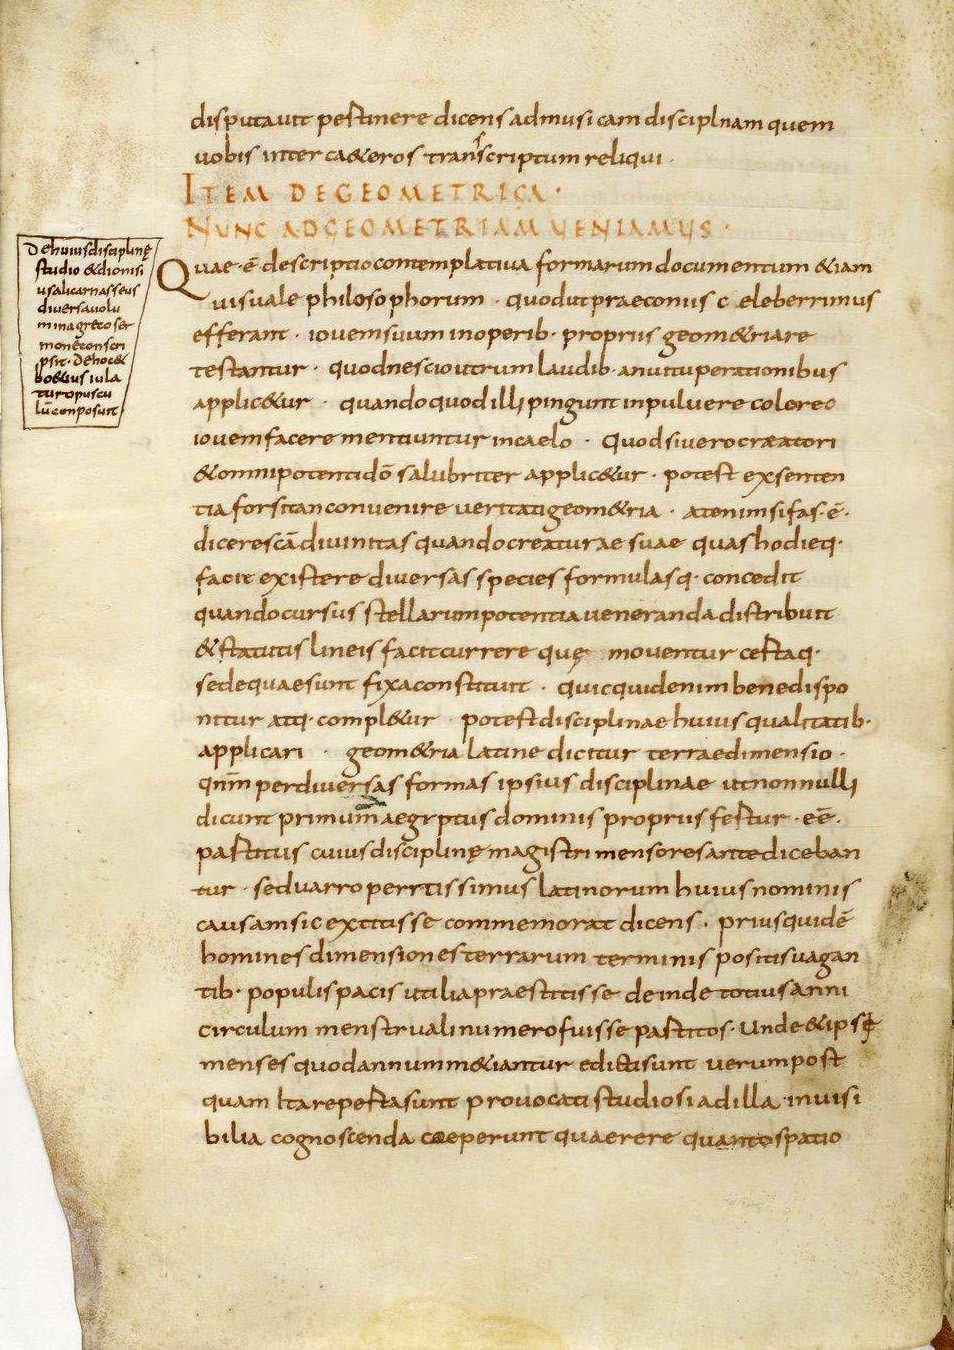 disputauit pertinere dicens ad musicam disciplnam quem
uobis inter ca&eros transcriptum reliqui ·
ITEM DE GEOMETRICA ·
NUNC AD GEOMETRIAM UENIAMUS ·
Quae · ē descriptio contemplatiua formarum documentum &iam
uisuale philosophorum · quod ut praeconiis c eleberrimus
efferant · iouem suum in operib· propriis geom&riare
testantur · quod nescio utrum laudib· an uituperationibus
applic&ur · quando quod illi pingunt in puluere coloreo
iouem facere mentiuntur in caelo · Quod si uero creatori
& omnipotenti dō salubriter applic&ur · potest ex senten
tia forsitan conuenire ueritati geom&ria · at enim si fas · ē ·
dicere scā diuinitas quando creaturae suae quas hodieq·
facit existere diuersas species formulasq· concedit
quando cursus stellarum potentia ueneranda distribuit
& statutis lineis facit currere quę mouentur certaq·
sede quae sunt fixa constituit · quicquid enim bene dispo
nitur atq· compl&ur potest disciplinae huius qualitatib·
applicari · geom&ria latine dicitur terrae dimensio ·
qnm̄ per diuersas formas ipsius disciplinae ut nonnulli
dicunt primum aegyptus dominis propriis fertur · eē ·
partitus cuius disciplinę magistri mensores ante diceban
tur · sed uarro peritissimus latinorum huius nominis
causam sic extitisse commemorat dicens · prius quidē
homines dimensiones terrarum terminis positis uagan
tib· populis pacis utilia praestitisse deinde totius anni
circulum menstruali numero fuisse partitos · Unde & ipsi
menses quod annum m&iantur edicti sunt uerum post
quam Ita reperta sunt prouocati studiosi ad illa · inuisi
bilia cognoscenda coeperunt quaerere quanto spatio
De huius disciplinę
studio & dionisi
us alicarnasseus
diuersa uolu
mina greco ser
mone conscri
psit · De hoc &
bo&ius iula
tur opuscu
lū composuit